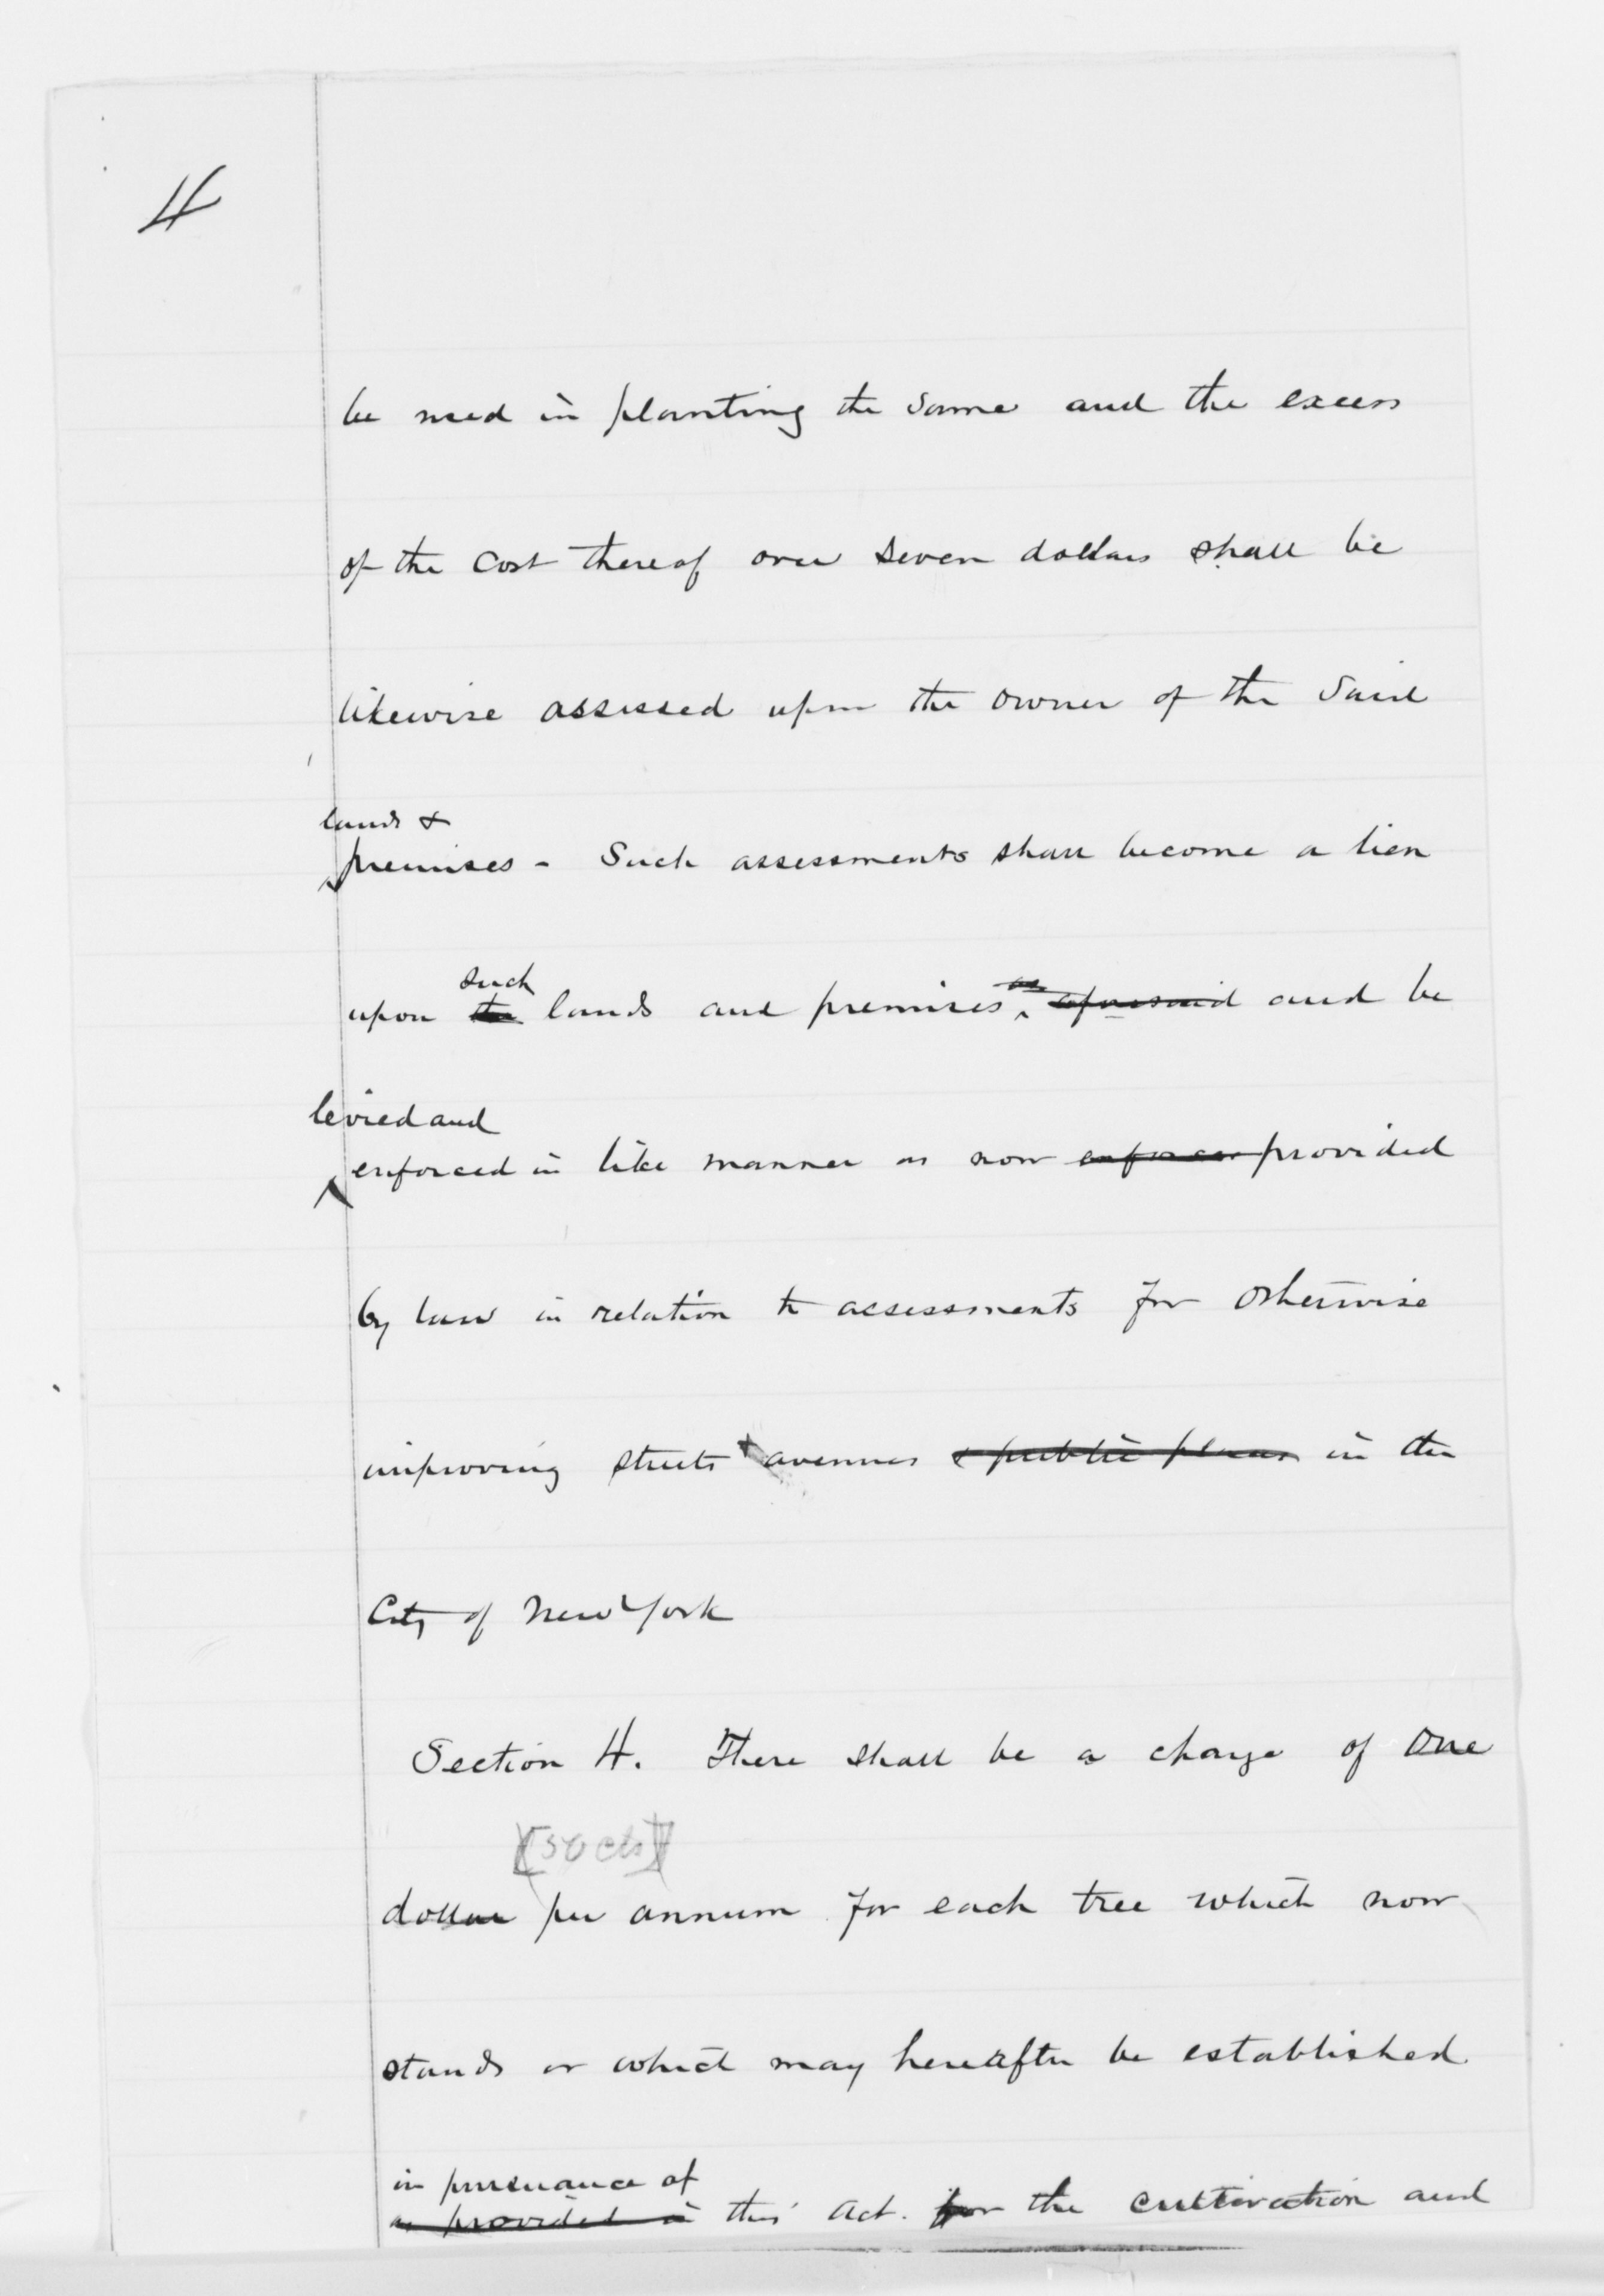 4
be used in planting the same and the excess
of the cost thereof over seven dollars shall be
likewise assessed upon the owner of the said
lands &
premises - Such assessments shall become a lien
such as
upon the lands and premises aforesaid and be
levied and
enforced in like manner as now enforced provided
by law in relation to assessments for otherwise
improving streets & avenues & public places in the
City of New York
Section 4. There shall be a charge of One
[50 cts]
dollar per annum for each tree which now
stands or which may hereafter be established
in pursuance of
as provided in this Act. for the cultivation and